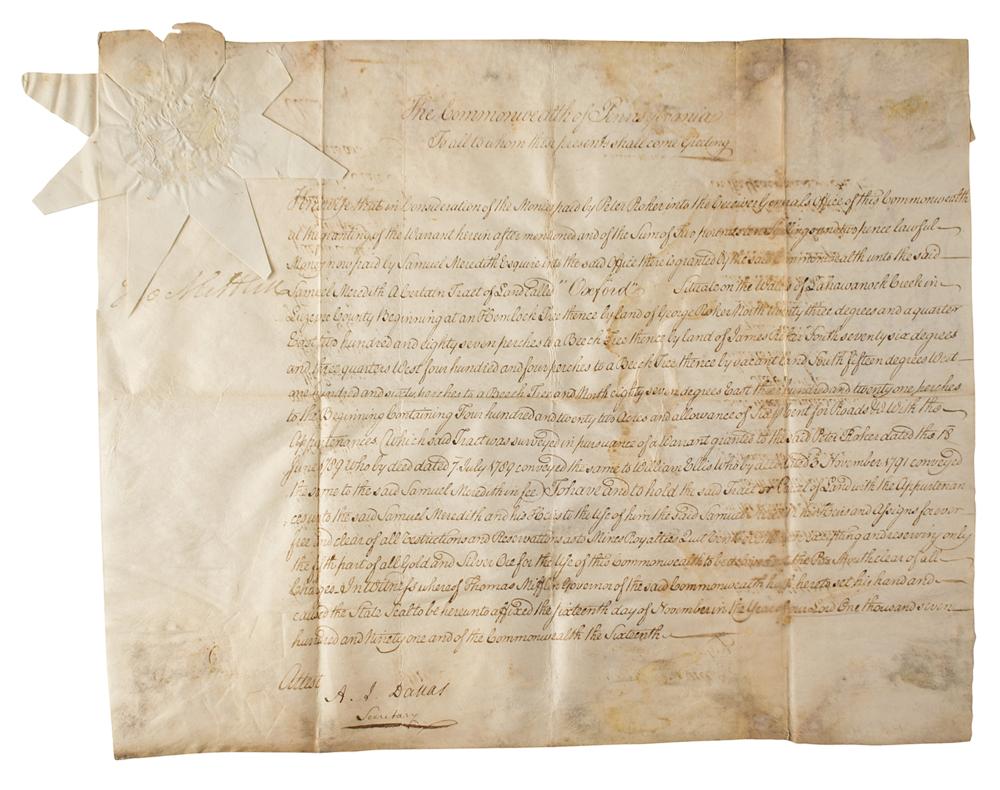 The Commonwealth of Pennsylvania
To all to whom these presents shall come Greeting
Know ye that in Consideration of the Monies paid by Peter Roker into the Receiver Generals Office of this Commonwealth
at the granting of the Warrant herein after mentioned and of the Sum of Two pounds ten Shillings and two pence lawful
Money now paid by Samuel Meredith Esquire into the said Office there is granted by the said Commonwealth unto the said
Tho Mifflin
Samuel Meredith A Certain Tract of Land Called "Oxford" Situate on the Waters of Lahawanock Creek in
Luzerne County Beginning at an Hemlock Tree thence by land of George Roker North twenty three degrees and a quarter
East two hundred and eighty seven perches to a Beech Tree thence by land of James Roker South seventy six degrees
and three quarters West four hundred and four perches to a Beech Tree thence by vacant land South fifteen degrees West
one hundred and sixty perches to a Beech Tree and North Eighty seven degrees East three hundred and twenty one perches
to the Beginning Containing Four hundred and twenty two Acres and allowance of Six p Cent for Roads &c With the
Appurtenances (Which said Tract was surveyed in pursuance of a Warrant granted to the said Peter Roker dated the 18
June 1789 Who by deed dated 7 July 1789 conveyed the same to William Ellis Who by deed dated 3 November 1791 conveyed
the same to the said Samuel Meredith in fee) To have and to hold the said Tract or Parcel of Land with the Appurtenan
ces unto the said Samuel Meredith and his Heirs to the Use of him the said Samuel Meredith his Heirs and Assigns forever
free and clear of all Restrictions and Reservations as to Mines Royalties Quit Rents or otherwise excepting and reserving only
the fifth part of all Gold and Silver Ore for the Use of this Commonwealth to be delivered at the Pits Mouth clear of all
Charges. In Witness whereof Thomas Mifflin Governor of the said Commonwealth hath hereto set his hand and
caused the State Seal to be hereunto affixed the sixteenth day of November in the Year of our Lord One thousand seven
hundred and Ninety one and of the Commonwealth the Sixteenth
Attest
A. J. Dallas
Secretary